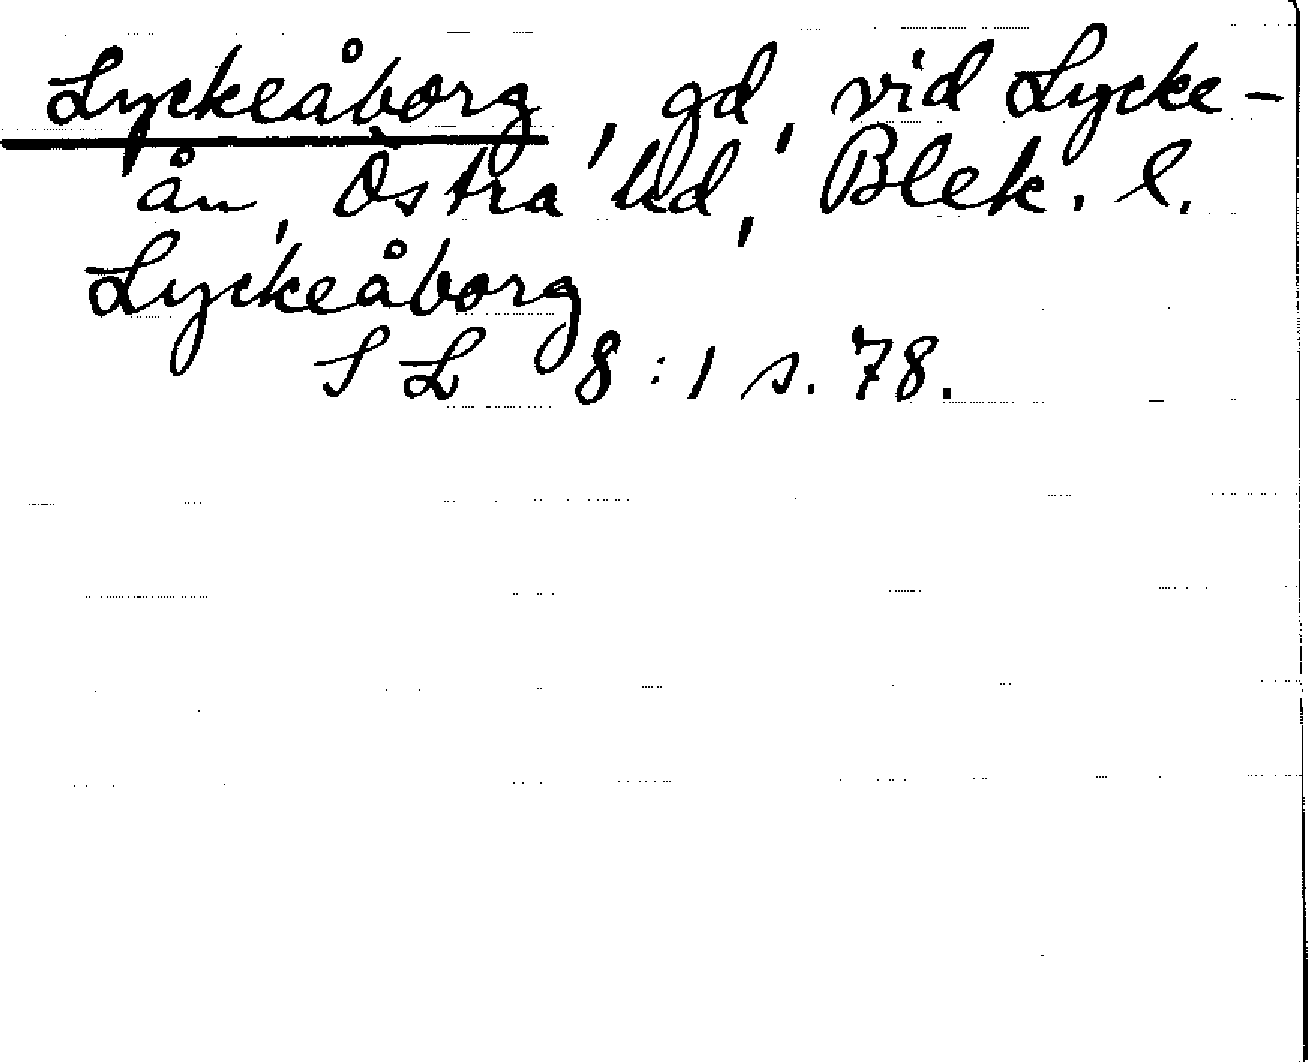 Lyckeåborg, gd, vid Lycke-
ån, Östra hd, Blek. l.
Lyckeåborg
SL 8:1 s. 78.